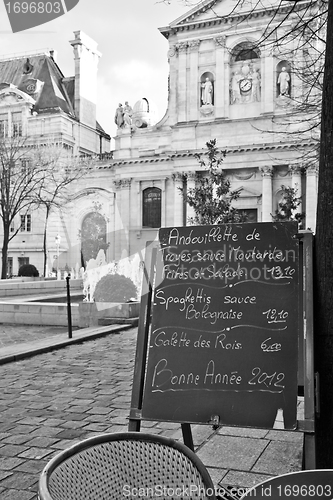 Andouillette de
Troyes, sauce Moutarde
Frites et Salade 13.10
Spaghettis sauce
Bolognaise 12.10
Galette des Rois 6.00
Bonne Année 2012
#1096536
© Stock Photos